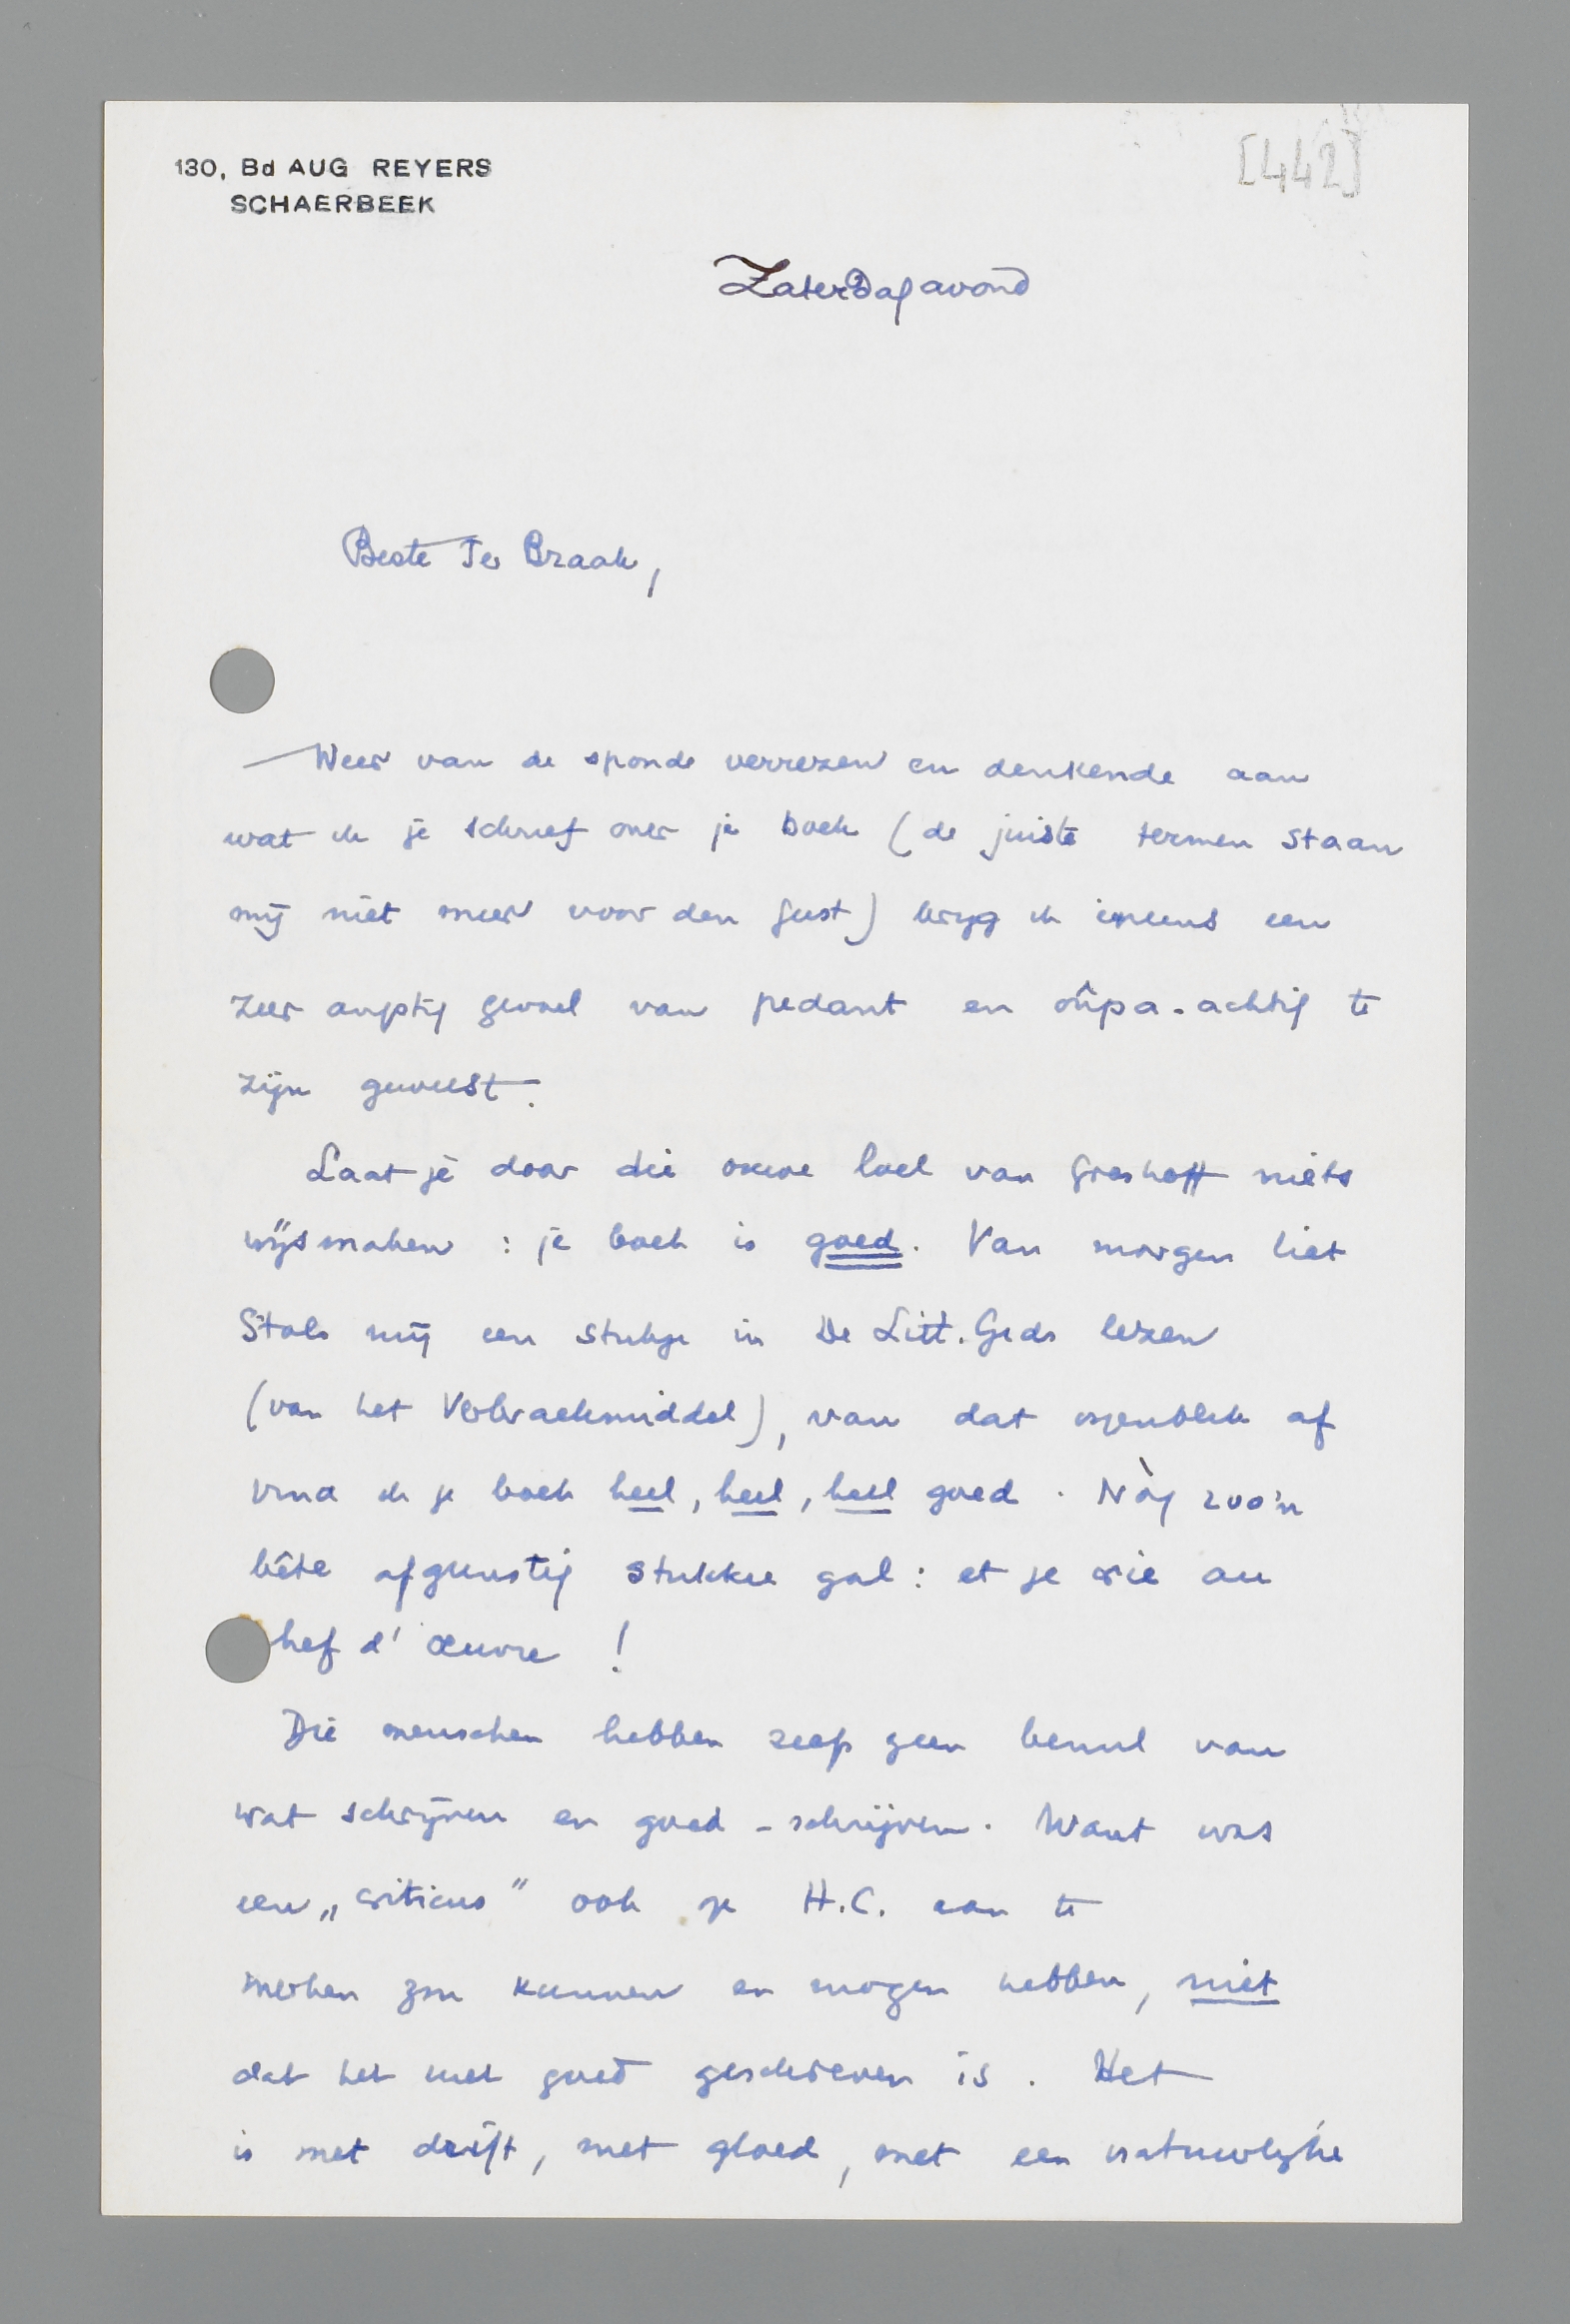 130, Bd AUG REYERS
SCHAERBEEK
[442]
Zaterdagavond
Beste Ter Braak,
Weer van de sponde verrezen en denkende aan
wat ik je schreef over je boek (de juiste termen staan
mij niet meer voor den geest) krijg ik ineens een
zeer angstig gevoel van pedant en ôûpa-achtig te
zijn geweest.
Laat je door die ouwe loel van Greshoff niets
wijsmaken : je boek is goed. Van morgen liet
Stols mij een stukje in De Litt. Gids lezen
(van het Verbraekmiddel), van dat oogenblik af
vind ik je boek heel, heel, heel goed. Nòg zoo'n
bête afgunstig stukkie gal : et je crie au
hef d'œuvre !
Die menschen hebben geen benul van
wat schrijven en goed-schrijven. Want wat
een „criticus" ook op H.C. aan te
merken zou kunnen en mogen hebben, niet
dat het niet goed geschreven is. Het
is met drift, met gloed, met een natuurlijke